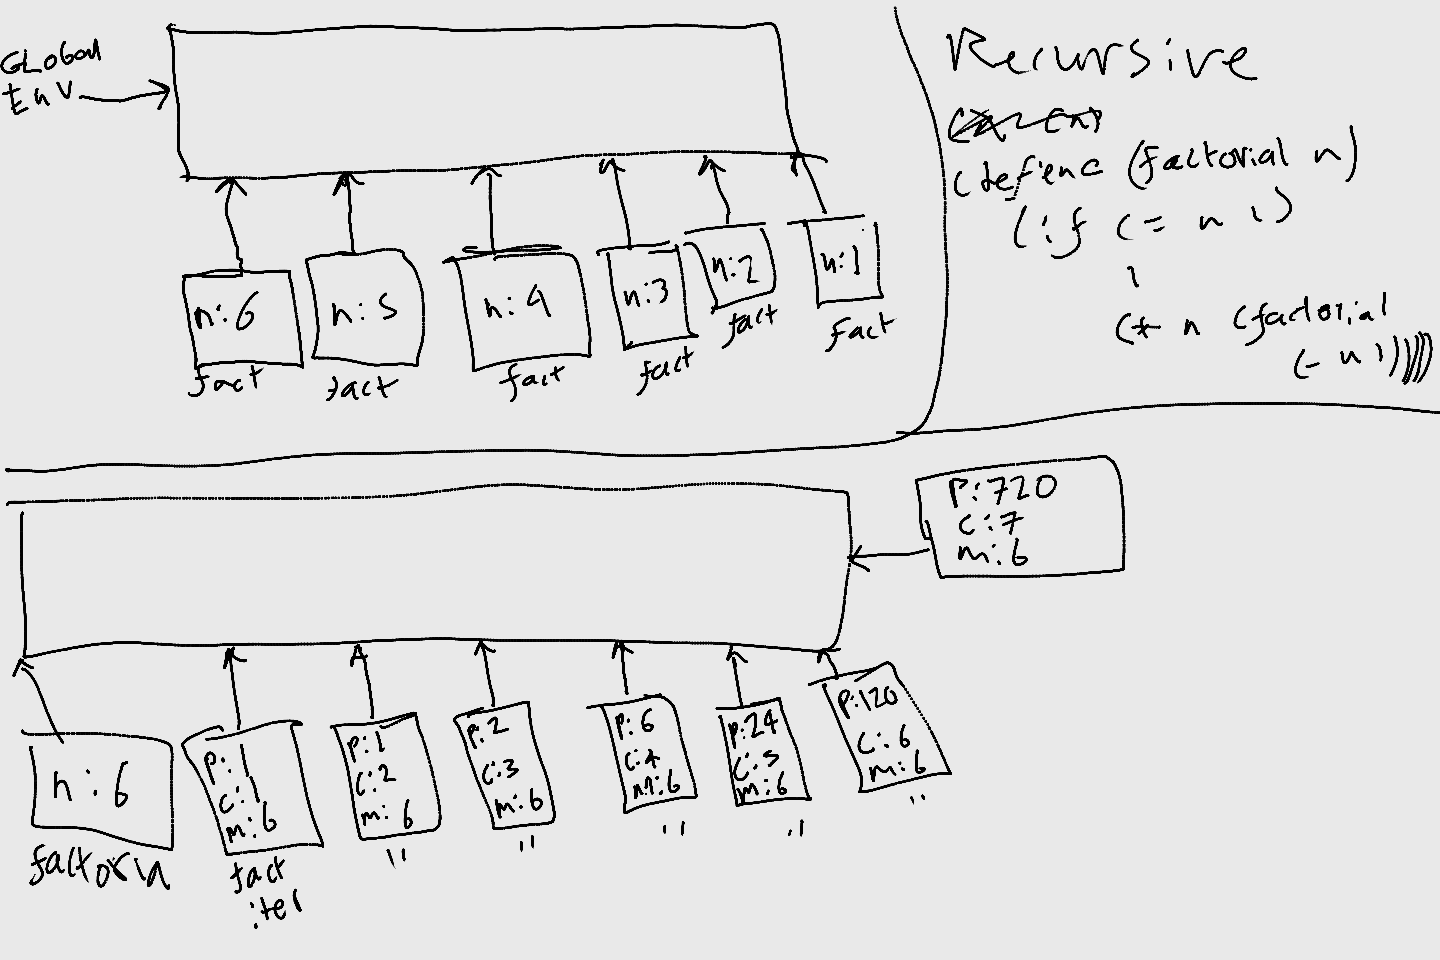 GLobal
Env
n:6
fact
n:5
fact
n:4
fact
n:3
fact
n:2
fact
n:1
fact
Recursive
(define (factorial n)
(if (= n 1)
1
(* n (factorial
(- n 1)))))
P:720
C:7
m:6
n:6
factorial
P:1
C:1
m:6
fact
iter
P:1
C:2
m:6
"
P:2
C:3
m:6
"
P:6
C:4
m:6
"
P:24
C:5
m:6
"
P:120
C:6
m:6
"